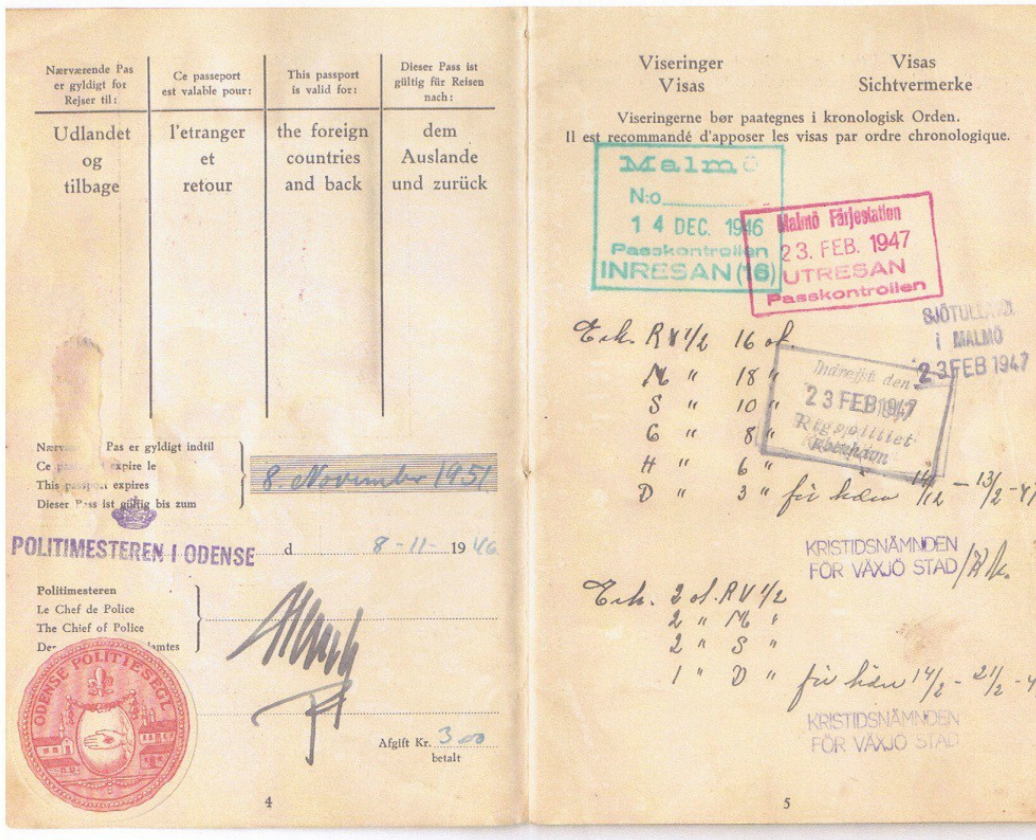 Nærværende Pas
er gyldigt for
Rejser til:
Udlandet
og
tilbage
Ce passeport
est valable pour:
l'etranger
et
retour
This passport
is valid for:
the foreign
countries
and back
Dieser Pass ist
gültig für Reisen
nach:
dem
Auslande
und zurück
Pas er gyldigt indtil
Ce expire le
This passport expires
Dieser Pass ist gültig bis zum
8. November 1951
POLITIMESTEREN I ODENSE d 8-11- 1946
Politimesteren
Le Chef de Police
The Chief of Police
ODENSE POLITIESEGL
Afgift Kr. 3 00
betalt
4
Viseringer
Visas
Visas
Sichtvermerke
Viseringerne bør paategnes i kronologisk Orden.
Il est recommandé d'apposer les visas par ordre chronologique.
Malmö
N:o
14 DEC. 1946
Passkontrollen
INRESAN (16)
Malmö Färjestation
23. FEB. 1947
UTRESAN
Passkontrollen
I MALMÖ
23 FEB 1947
Indrejst den
23 FEB 1947
Rigspolitiet
København
Erh. RV 1/2 16 st.
M " 18 "
S " 10 "
G " 8 "
H " 6 "
D " 3 " för tiden 14/12 - 13/2 - 47
KRISTIDSNÄMNDEN
FÖR VÄXJÖ STAD
Erh. 2 st. RV 1/2
2 " M "
2 " S "
1 " D " för tiden 14/2 - 21/2 - 4
KRISTIDSNÄMNDEN
FÖR VÄXJÖ STAD
5